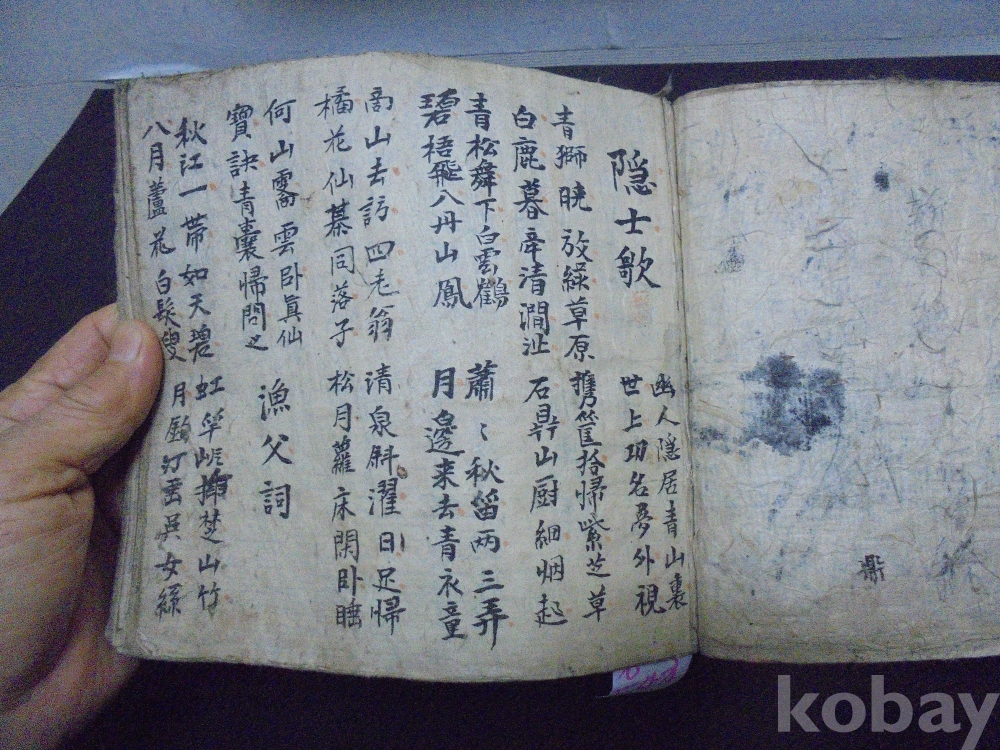 隠士歌
幽人隱居青山裏
世上功名夢外視
青獅曉放綠草原 携筐拾帰紫芝草
白鹿暮牽清澗沚 石鼎山厨細烟起
青松舞下白雲鶴 蕭〻秋笛両三弄
碧梧飛入丹山鳳 月邊来去青衣童
商山去訪四老翁 清泉濯日足帰
橘花仙棊同落子 松月蘿床閑卧睡
何山靄雲卧眞仙
寶訣青囊帰問之
漁父詞
秋江一帶如天碧 虹竿楚山竹
八月蘆花白髮叟 月汀垂吳女絲
kobay